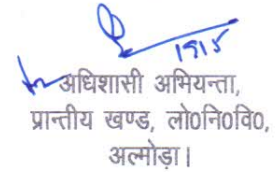 1915
अधिशासी अभियन्ता,
प्रान्तीय खण्ड, लो०नि०वि०,
अल्मोड़ा।